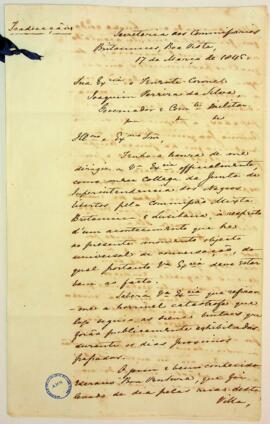 Traducção
Secretaria dos Commissarios
Britannicos, Boa Vista,
17 de Março de 1845.
Sua Exia o Tenente Coronel
Joaquim Pereira da Silva,
Governador e Comte Militar
Illmo e Exmo Snr,
Tenho a honra de me
dirigir a Va Exia officialmente,
como meu Collega da Junta da
Superintendencia dos Negros
libertos pela Commissão Mixta
Britannica e Lusitana, a respeito
d'um acontecimento que he
ao presente momento objecto
universal de conversação, do
qual portanto Va Exia deve estar
bem ao facto.
Saberá Va Exia que
a horrivel catastrofe que
as scenas
forão publicamente exhibidas
durante os dias proximos
passados.
A pouco e bem conhecido
escravo Boa Ventura, que foi
levado de dia pelas ruas desta
Villa,